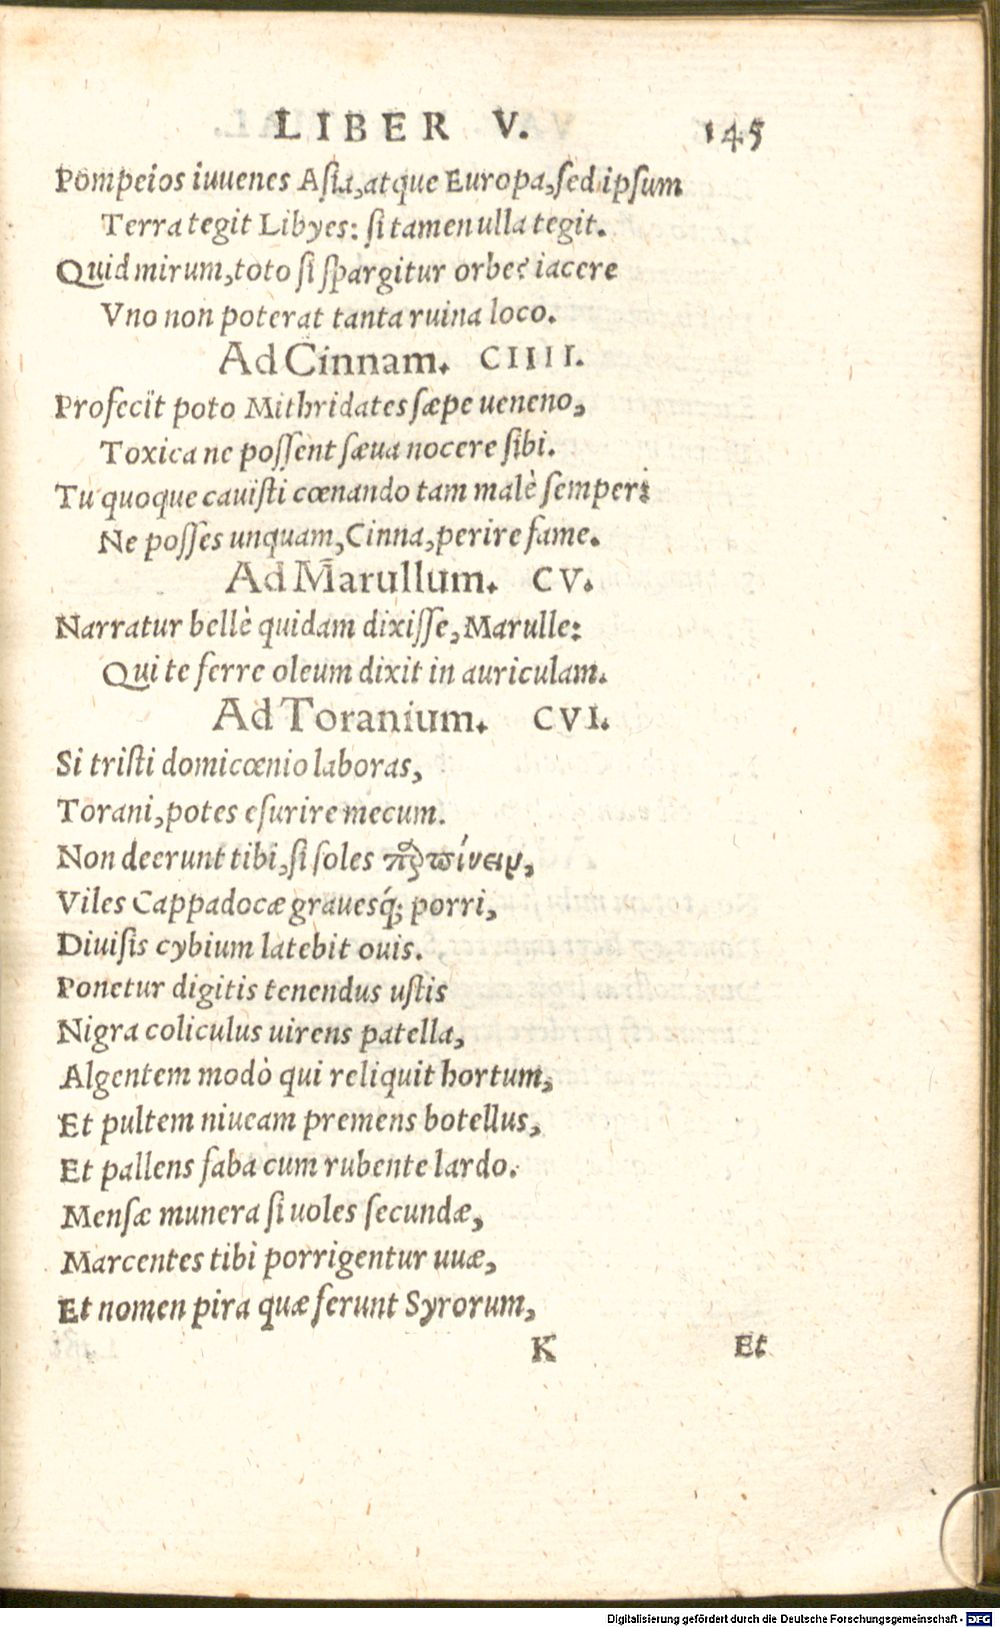 LIBER V. 145
Pompeios iuuenes Asia, atque Europa, sed ipsum
Terra tegit Libyes: si tamen ulla tegit.
Quid mirum, toto si spargitur orbe? iacere
Vno non poterat tanta ruina loco.
Ad Cinnam. CIIII.
Profecit poto Mithridates sæpe ueneno,
Toxica ne possent sæua nocere sibi.
Tu quoque cauisti cœnando tam malè semper:
Ne posses unquam, Cinna, perire fame.
Ad Marullum. CV.
Narratur bellè quidam dixisse, Marulle:
Qui te ferre oleum dixit in auriculam.
Ad Toranium. CVI.
Si tristi domicœnio laboras,
Torani, potes esurire mecum.
Non deerunt tibi, si soles προπίνειν,
Viles Cappadocæ grauesq́; porri,
Diuisis cybium latebit ouis.
Ponetur digitis tenendus ustis
Nigra coliculus uirens patella,
Algentem modò qui reliquit hortum,
Et pultem niueam premens botellus,
Et pallens faba cum rubente lardo.
Mensæ munera si uoles secundæ,
Marcentes tibi porrigentur uuæ,
Et nomen pira quæ ferunt Syrorum,
K Et
Digitalisierung gefördert durch die Deutsche Forschungsgemeinschaft - DFG